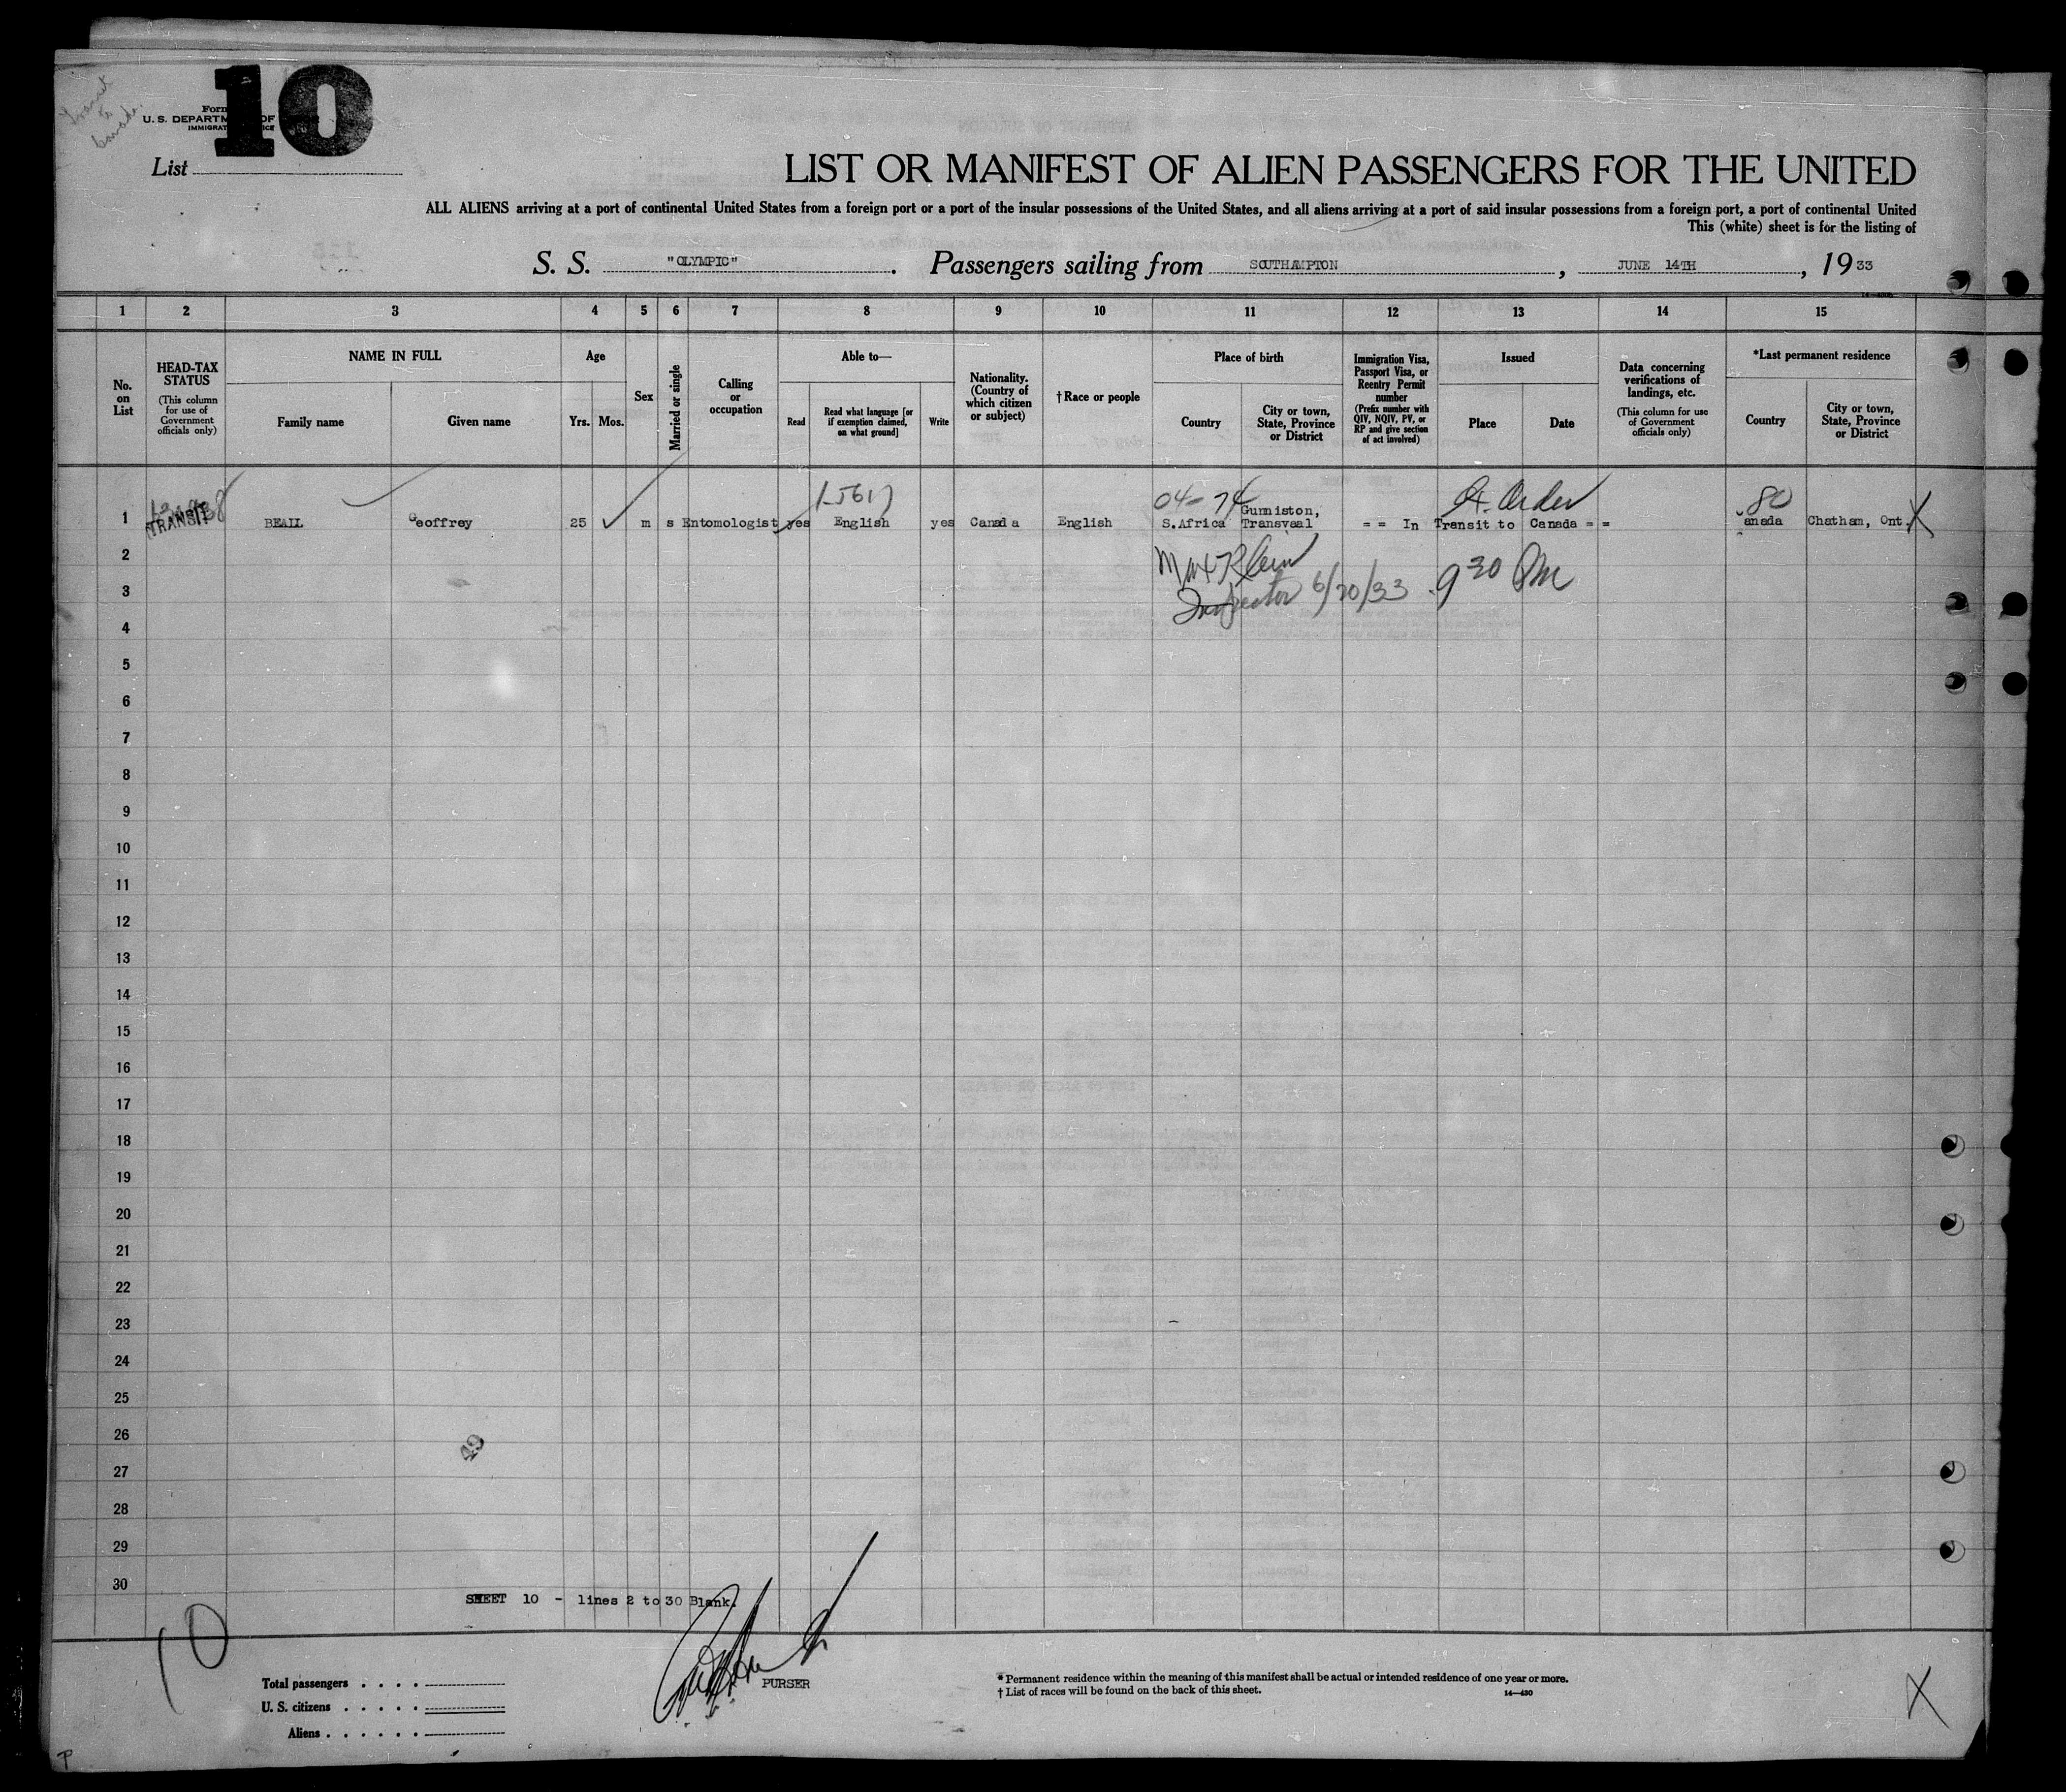 Transit
to
Canada.
10
Form
U. S. DEPARTM OF
IMMIGRAT ICE
List
LIST OR MANIFEST OF ALIEN PASSENGERS FOR THE UNITED
ALL ALIENS arriving at a port of continental United States from a foreign port or a port of the insular possessions of the United States, and all aliens arriving at a port of said insular possessions from a foreign port, a port of continental United
This (white) sheet is for the listing of
S. S. "OLYMPIC". Passengers sailing from SOUTHAMPTON, JUNE 14TH, 1933
1 2 3 4 5 6 7 8 9 10 11 12 13 14 15
No. on List
HEAD-TAX STATUS (This column for use of Government officials only)
NAME IN FULL
Family name Given name
Age
Yrs. Mos.
Sex
Married or single
Calling or occupation
Able to—
Read Read what language [or if exemption claimed, on what ground] Write
Nationality. (Country of which citizen or subject)
†Race or people
Place of birth
Country City or town, State, Province or District
Immigration Visa, Passport Visa, or Reentry Permit number (Prefix number with QIV, NQIV, PV, or RP and give section of act involved)
Issued
Place Date
Data concerning verifications of landings, etc. (This column for use of Government officials only)
*Last permanent residence
Country City or town, State, Province or District
04-74 80
1 TRANSIT BEALL Geoffrey 25 m s Entomologist yes English yes Canada English S.Africa Gumiston, Transveal = = In Transit to Canada = = anada Chatham, Ont. X
2
Max Klein
3
Inspector 6/20/33 9 30 PM
4
5
6
7
8
9
10
11
12
13
14
15
16
17
18
19
20
21
22
23
24
25
26
49
27
28
29
30
SHEET 10 - lines 2 to 30 Blank.
10
PURSER
Total passengers . . . .
U. S. citizens . . . . .
Aliens . . . . . .
* Permanent residence within the meaning of this manifest shall be actual or intended residence of one year or more.
† List of races will be found on the back of this sheet.
14—430
X
P